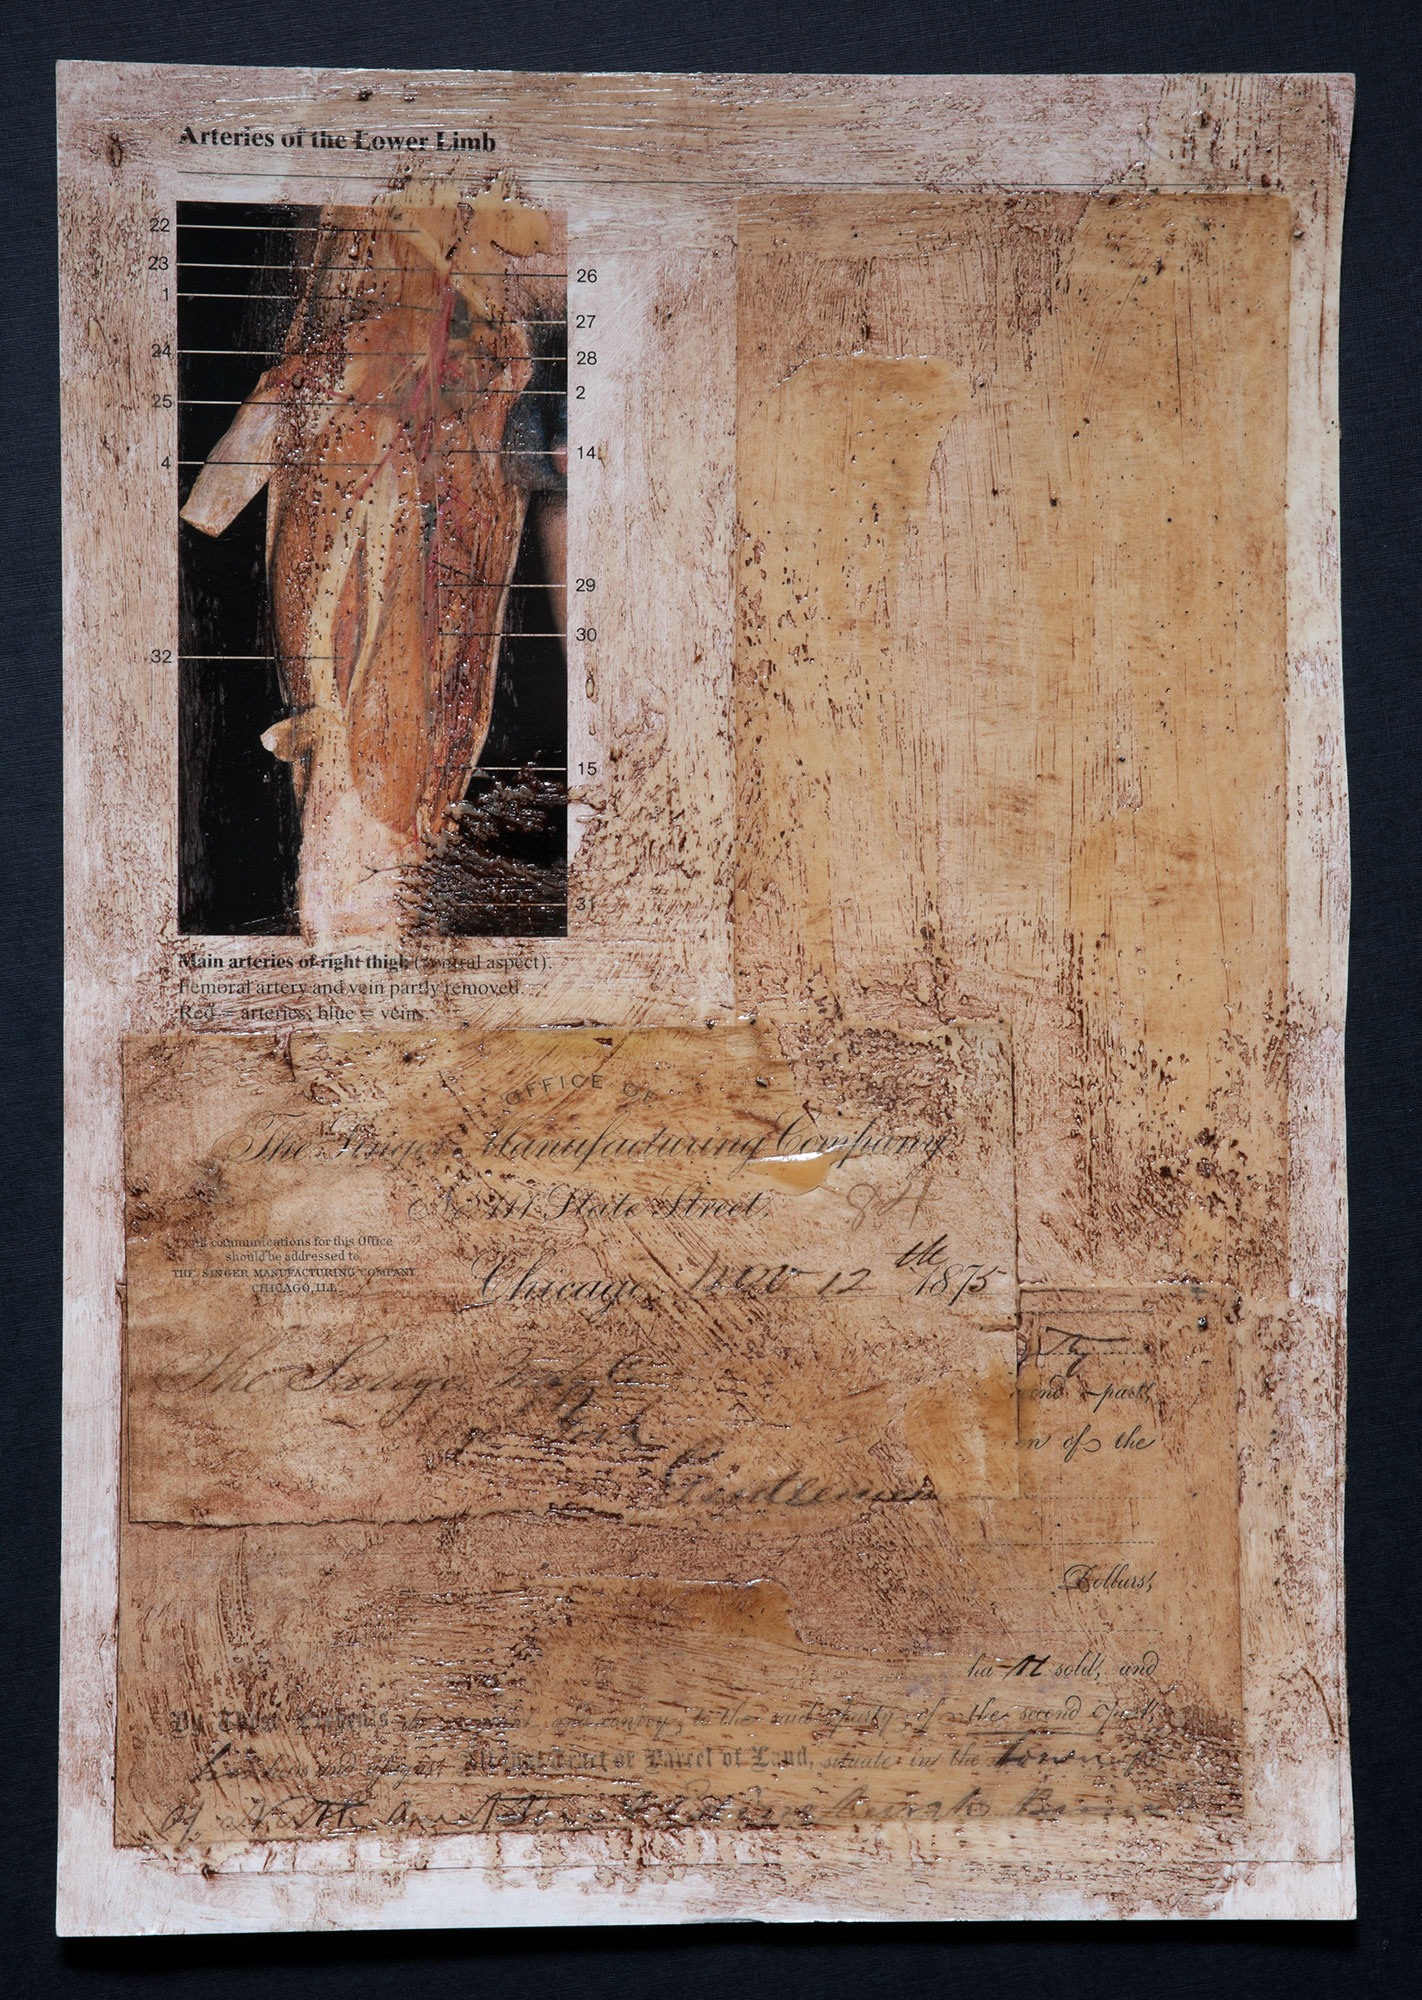 Arteries of the Lower Limb
22
23
1
24
25
4
32
26
27
28
2
14
29
30
15
31
Main arteries of right thigh (ventral aspect).
Femoral artery and vein partly removed.
Red = arteries; blue = veins.
OFFICE OF
The Singer Manufacturing Company
No 111 State Street,
84
All communications for this Office
should be addressed to
THE SINGER MANUFACTURING COMPANY
CHICAGO, ILL.
Chicago, Nov 12th 1875
The Singer Mfg Co
New York
Gentlemen
ond part,
of the
Dollars,
ha th sold, and
By These Presents do grant and convey, to the said party of the second part,
heirs and assigns All that Tract or Parcel of Land, situate in the Town
of North